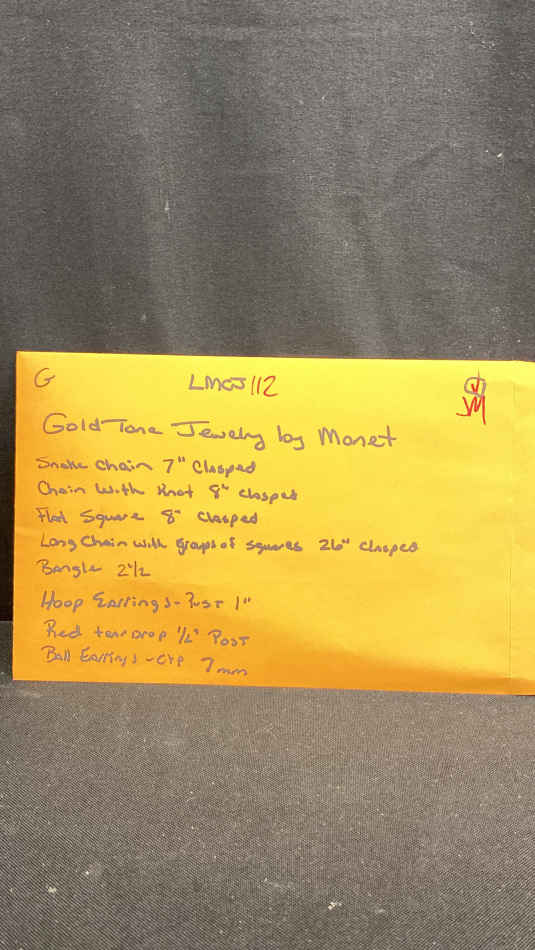 G LMCJ112
JM
Gold Tone Jewelry by Monet
Snake Chain 7" Clasped
Chain With Knot 8" clasped
Flat Square 8" Clasped
Long Chain with groups of squares 26" clasped
Bangle 2 1/2
Hoop Earrings - Post 1"
Red tear Drop 1/2" Post
Ball Earrings - Clip 7mm